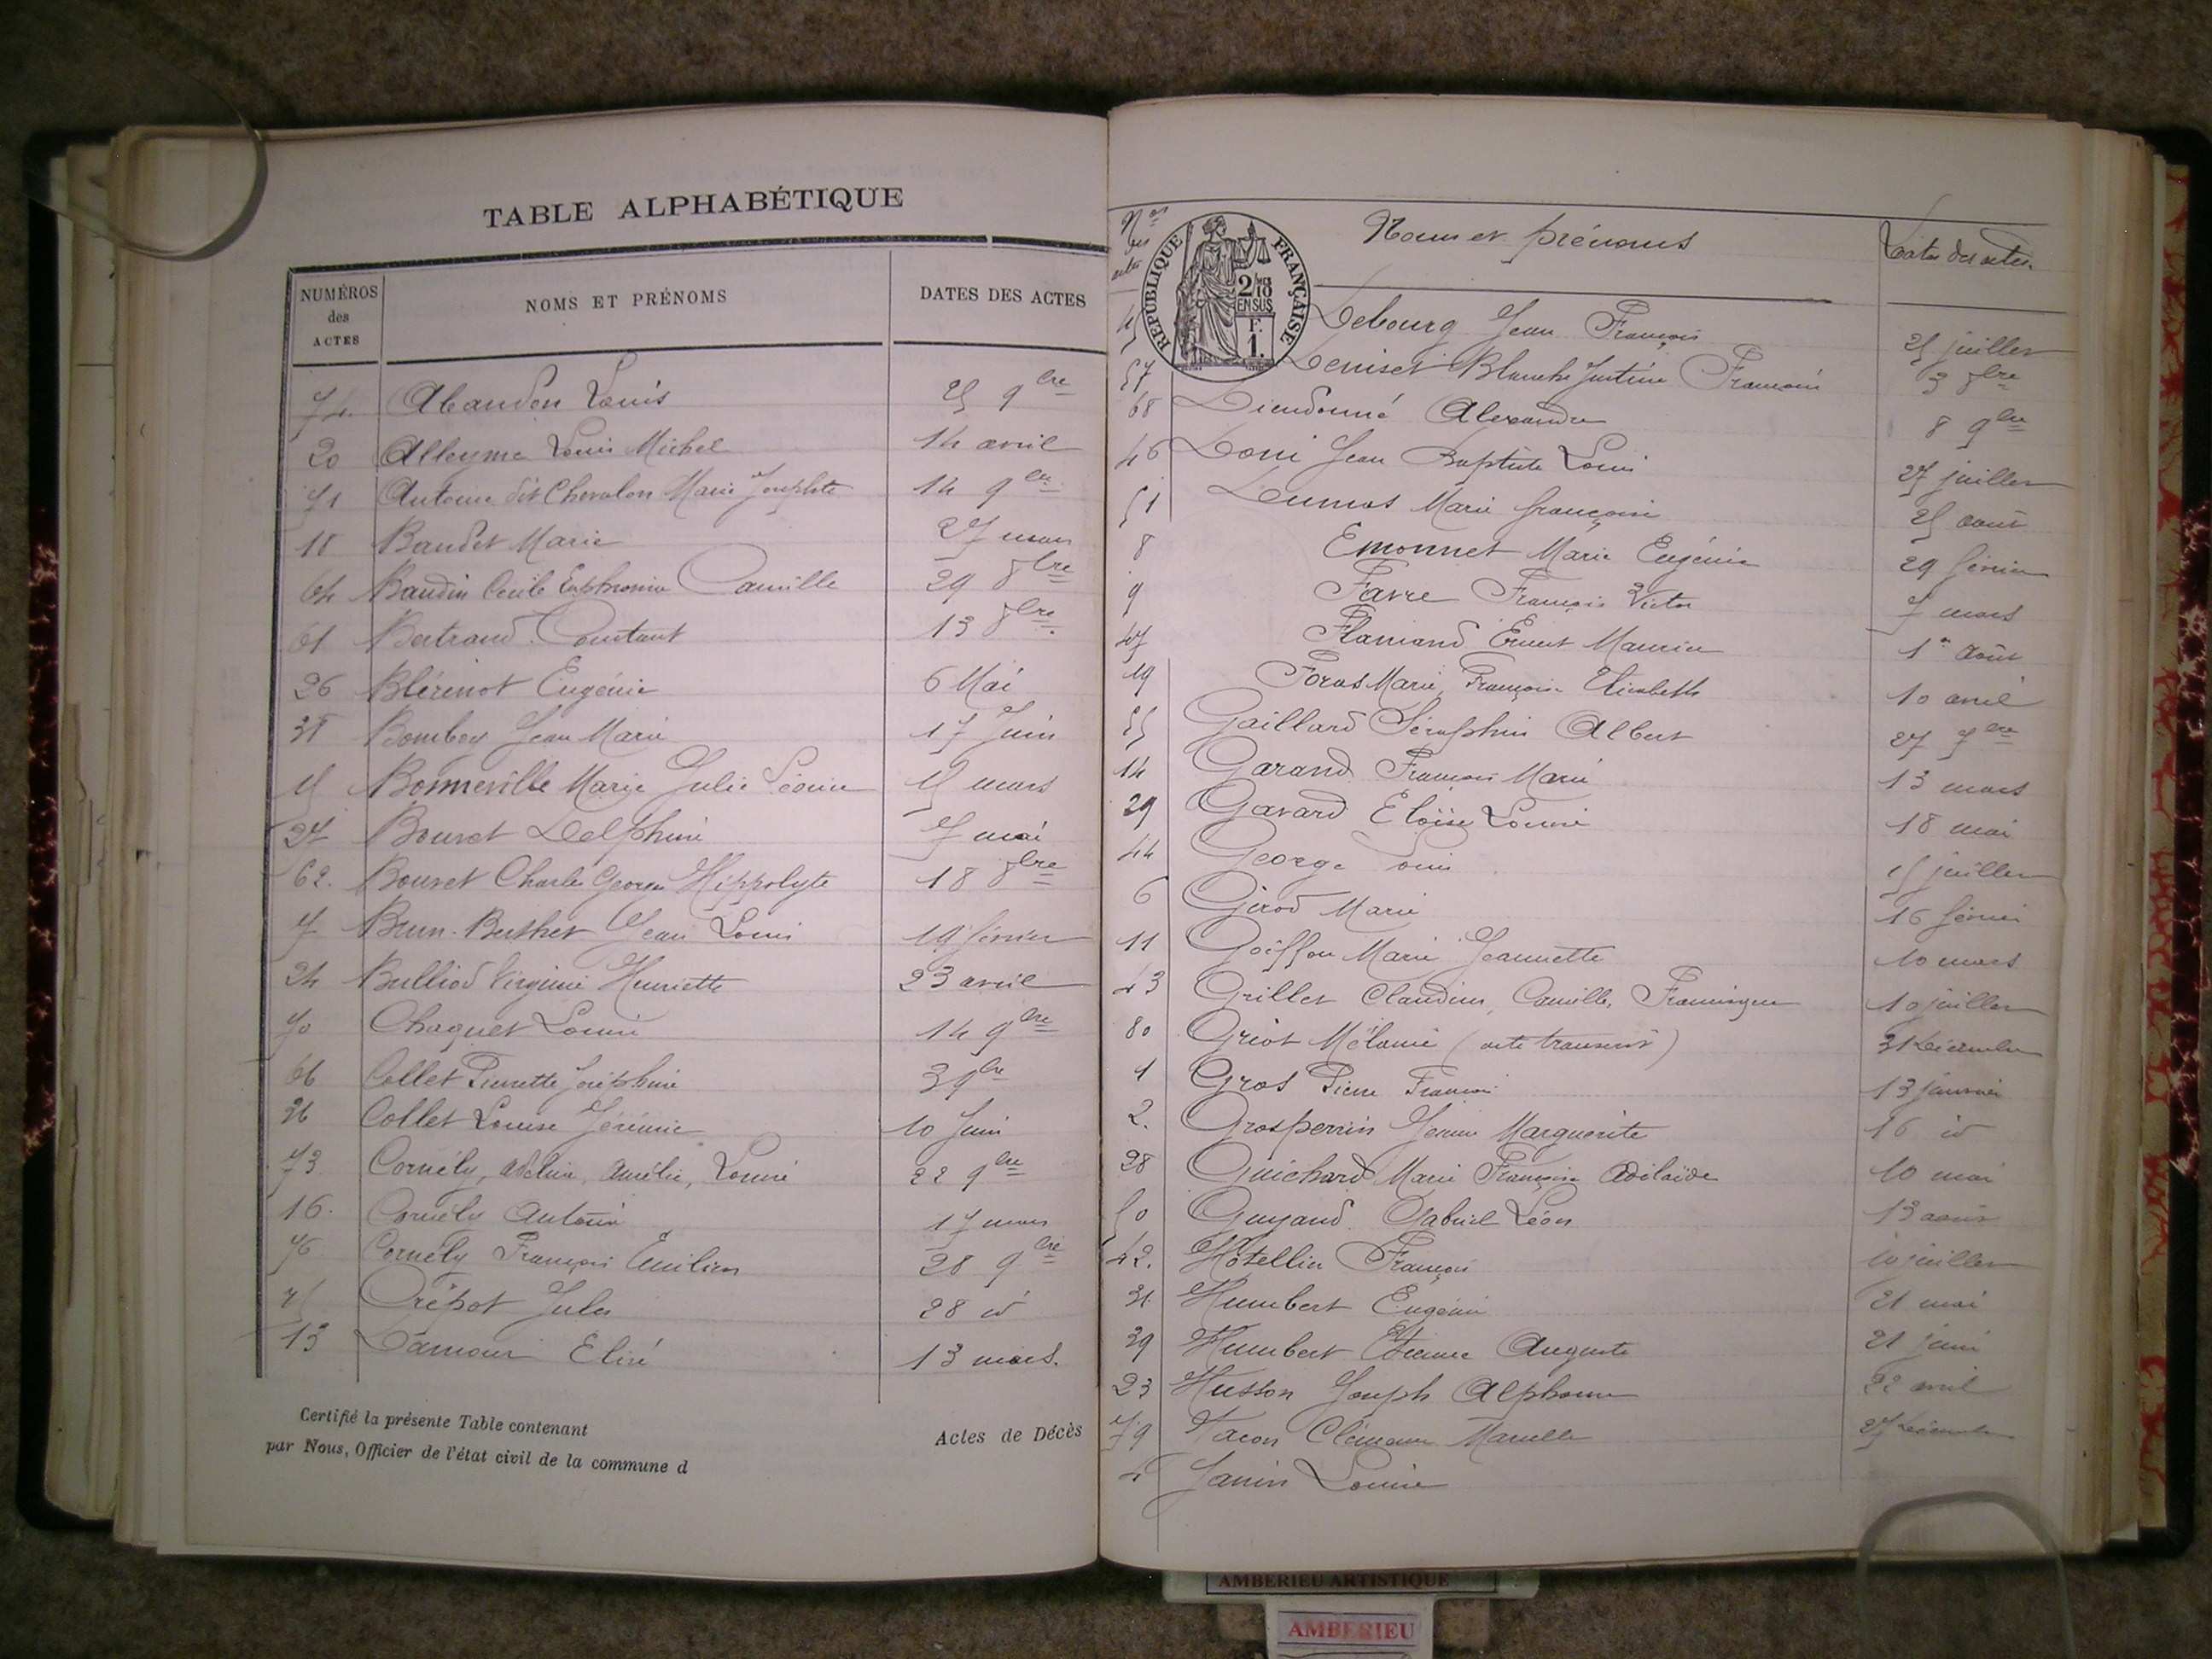 TABLE ALPHABÉTIQUE
NUMÉROS des ACTES NOMS ET PRÉNOMS DATES DES ACTES
74. Abandon Louis 25 9bre
20 Alleyme Louis Michel 14 avril
71 Antoine dit Chevalon Marie Josephte 14 9bre
18 Baudet Marie 27 mars
64 Baudin Cécile Euphrosine Camille 29 8bre
61 Bertrand Constant 13 8bre
26 Blérinot Eugénie 6 Mai
38 Bomboy Jean Marie 17 Juin
15 Bonneville Marie Julie Léonie 15 mars
27 Bouvet Delphine 7 mai
62. Bouvet Charles Georges Hippolyte 18 8bre
7 Brun-Berthet Jean Louis 19 février
24 Bulliod Virginie Henriette 23 avril
70 Chaquet Louise 14 9bre
66 Collet Pierrette Joséphine 3 9bre
36 Collet Louise Jérémie 10 Juin
73 Cornély, Adeline, Amélie, Louise 22 9bre
16. Cornély Antoine 17 mars
76 Cornély François Emilien 28 9bre
75 Crépot Jules 28 id
13 Damour Elisé 13 mars.
Certifié la présente Table contenant Actes de Décès
par Nous, Officier de l'état civil de la commune d
Nos des actes Noms et prénoms Dates des actes
RÉPUBLIQUE FRANÇAISE
2/10 EN SUS
F. 1.
45 Debourg Jean François 25 juillet
57 Deniset Blanche Justine 3 8bre
68 Dieudonné Alexandre 8 9bre
46 Doni Jean Baptiste Louis 27 juillet
51 Dumas Marie françoise 25 août
8 Emonnet Marie Eugénie 29 février
9 Favre François Victor 7 mars
47 Flamand Ernest Maurice 1er Août
19 Foras Marie Françoise Elisabeth 10 avril
55 Gaillard Séraphin Albert 27 7bre
14 Garand François Marie 13 mars
29 Gavard Eloïse Louise 18 mai
44 George Louis 15 juillet
6 Girod Marie 16 février
11 Goiffon Marie Jeannette 10 mars
43 Grillet Claudius, Camille, 10 juillet
80 Griot Mélanie (acte transcrit) 31 Décembre
1 Gros Pierre François 13 janvier
2. Grosperrin Jenne Marguerite 16 id
28 Guichard Marie Françoise Adélaïde 10 mai
50 Guyand Gabriel Léon 13 août
42. Hôtellier François 10 juillet
31 Humbert Eugénie 21 mai
39 Humbert Etienne Auguste 21 juin
23 Husson Joseph Alphonse 22 avril
79 Jacon Clémence Marcelle 27 Décembre
4 Janin Louise
AMBERIEU ARTISTIQUE
AMBERIEU